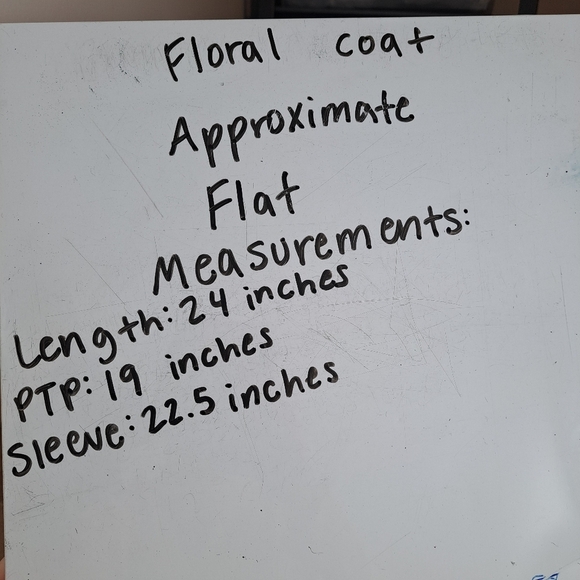 Floral coat
Approximate
Flat
Measurements:
Length: 24 inches
PTP: 19 inches
Sleeve: 22.5 inches